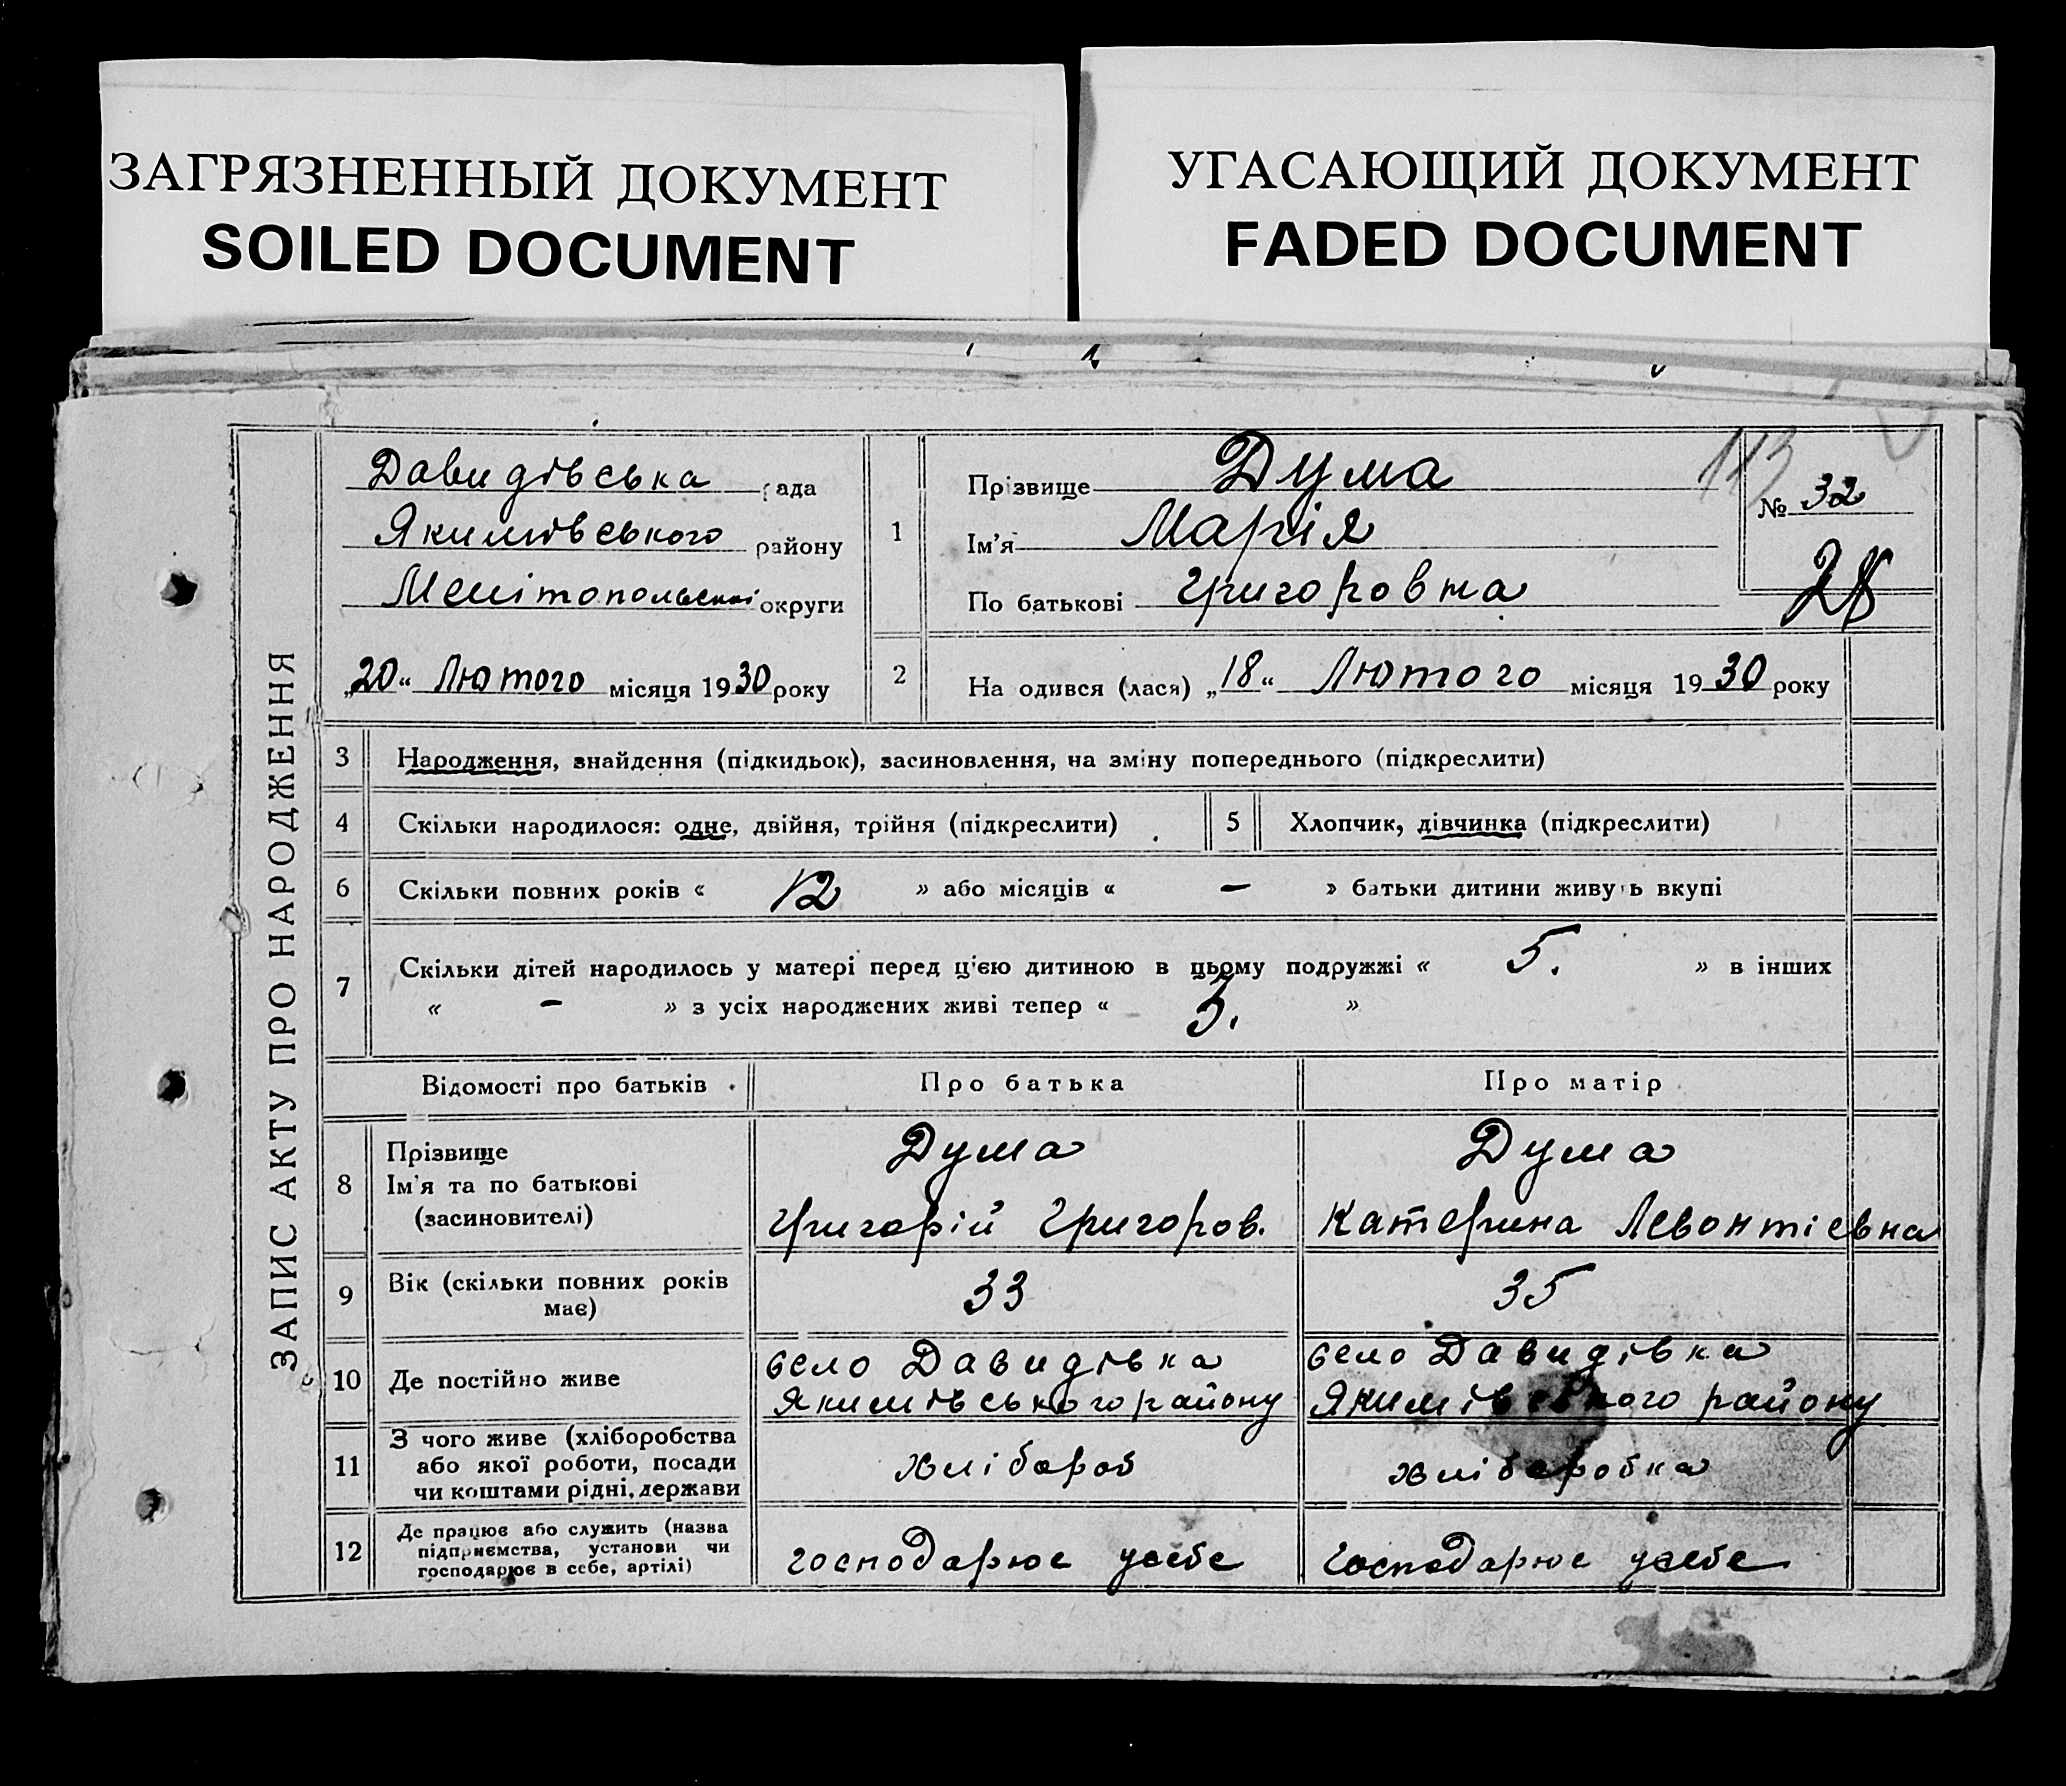 ЗАГРЯЗНЕННЫЙ ДОКУМЕНТ
SOILED DOCUMENT
УГАСАЮЩИЙ ДОКУМЕНТ
FADED DOCUMENT
ЗАПИС АКТУ ПРО НАРОДЖЕННЯ
Давидівська рада
Якимівського району
Мелітопольської округи
„20“ Лютого місяця 1930 року
1
Прізвище Дума
Ім'я Марія
По батькові Григоровна
113
№ 32
28
2
На одився (лася) „18“ Лютого місяця 1930 року
3 Народження, знайдення (підкидьок), засиновлення, на зміну попереднього (підкреслити)
4 Скільки народилося: одне, двійня, трійня (підкреслити)
5 Хлопчик, дівчинка (підкреслити)
6 Скільки повних років « 12 » або місяців « — » батьки дитини живуть вкупі
7 Скільки дітей народилось у матері перед ц'єю дитиною в цьому подружжі « 5. » в інших
« — » з усіх народжених живі тепер « 5. »
Відомості про батьків Про батька Про матір
8 Прізвище Дума Дума
Ім'я та по батькові Григорій Григоров. Катерина Левонтієвна
(засиновителі)
9 Вік (скільки повних років 33 35
має)
10 Де постійно живе село Давидівка село Давидівка
Якимівського району Якимівського району
11 З чого живе (хліборобства
або якої роботи, посади хлібороб хліборобка
чи коштами рідні, держави
12 Де працює або служить (назва
підприємства, установи чи господарює усебе господарює усебе
господарює в себе, артілі)